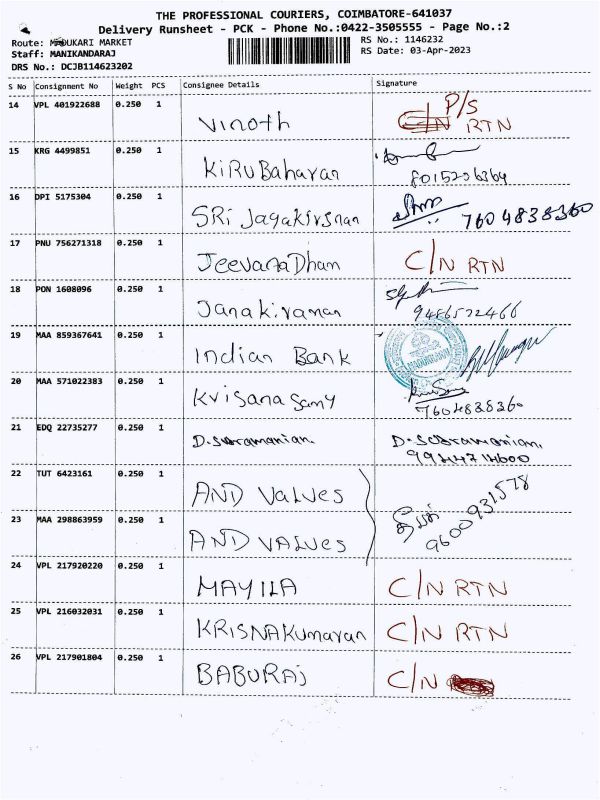 THE PROFESSIONAL COURIERS, COIMBATORE-641037
Delivery Runsheet - PCK - Phone No.:0422-3505555 - Page No.:2
Route: MADUKARI MARKET RS No.: 1146232
Staff: MANIKANDARAJ RS Date: 03-Apr-2023
DRS No.: DCJB114623202
S No Consignment No Weight PCS Consignee Details Signature
14 VPL 401922688 0.250 1 Vinoth P/S C/N RTN
15 KRG 4499851 0.250 1 KiRUBaharan
8015236364
16 DPI 5175304 0.250 1 SRi Jagakirsnan 7604838360
17 PNU 756271318 0.250 1 JeevanaDham C/N RTN
18 PON 1608096 0.250 1 Janakiraman 9486522466
19 MAA 859367641 0.250 1 Indian Bank
20 MAA 571022383 0.250 1 Krisanasamy
7604838360
21 EDQ 22735277 0.250 1 D.subramanian. D.Subramanian.
9944714600
22 TUT 6423161 0.250 1 AND Valves
9600931578
23 MAA 298863959 0.250 1 AND VALVES
24 VPL 217920220 0.250 1 MAYILA C/N RTN
25 VPL 216032031 0.250 1 KRISNAKumaran C/N RTN
26 VPL 217901804 0.250 1 BABURAj C/N